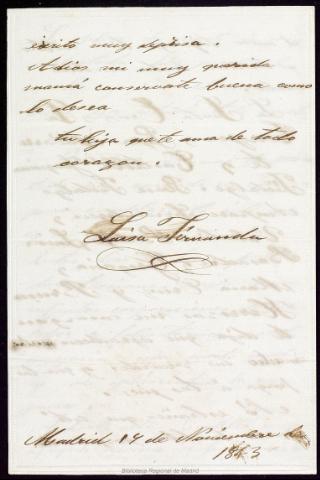 escrito muy deprisa.
Adios mi muy querida
mamá conservate buena como
lo desea
tu hija que te ama de todo
corazon.
Luisa Fernanda
Madrid 14 de Noviembre de
1843
Biblioteca Regional de Madrid